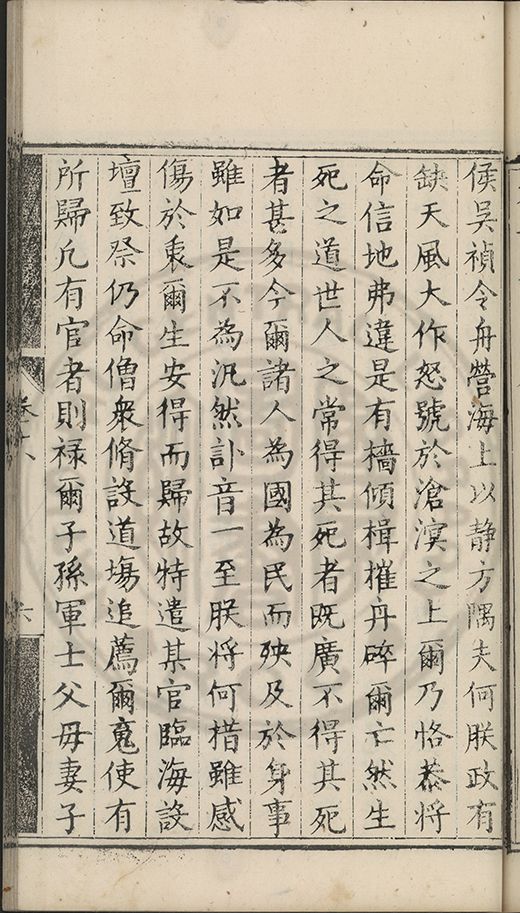 侯吳禎令舟營海上以静方隅夫何朕政有
缺天風大作怒號於滄溟之上爾乃恪恭將
命信地弗違是有檣傾楫摧丹碎爾亡然生
死之道世人之常得其死者既廣不得其死
者甚多今爾諸人為國為民而殃及於身事
雖如是不為汎然訃音一至朕將何措雖感
傷於衷爾生安得而歸故特遣某官臨海設
壇致祭仍命僧衆脩設道場追薦爾䰟使有
所歸凢有官者則禄爾子孫軍士父母妻子
卷十八
六